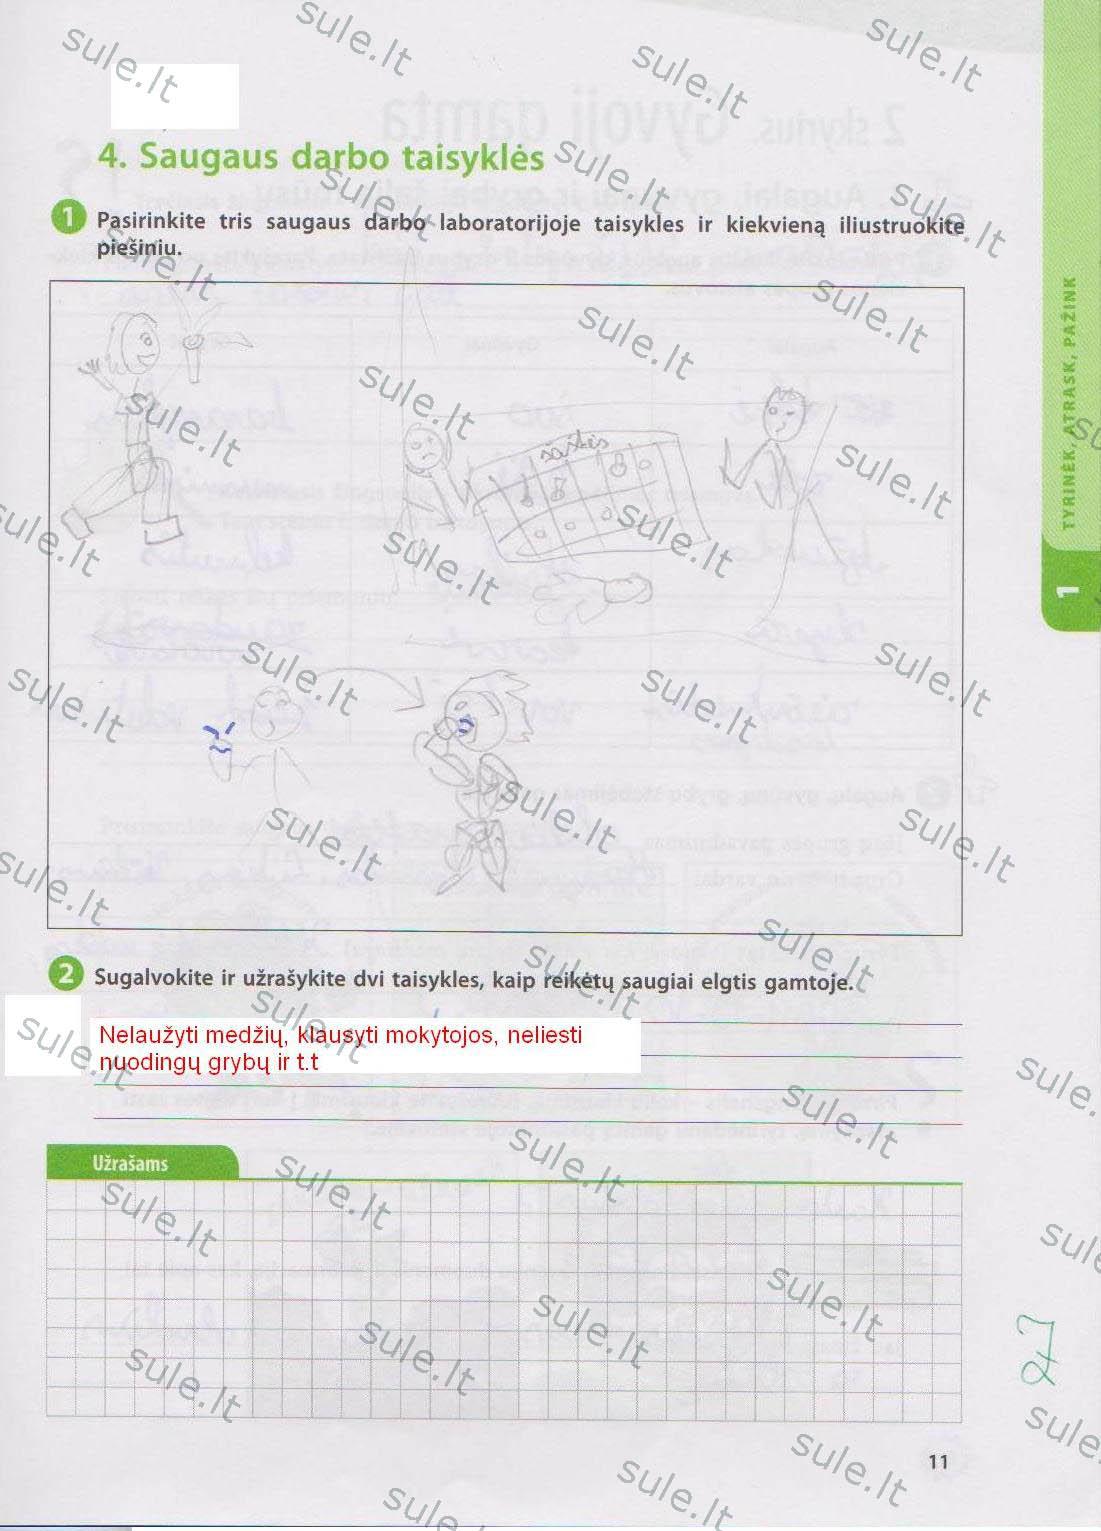 4. Saugaus darbo taisyklės
1 Pasirinkite tris saugaus darbo laboratorijoje taisykles ir kiekvieną iliustruokite
piešiniu.
šaškės
2 Sugalvokite ir užrašykite dvi taisykles, kaip reikėtų saugiai elgtis gamtoje.
Nelaužyti medžių, klausyti mokytojos, neliesti
nuodingų grybų ir t.t
Užrašams
TYRINĖK, ATRASK, PAŽINK
1
11
sule.lt